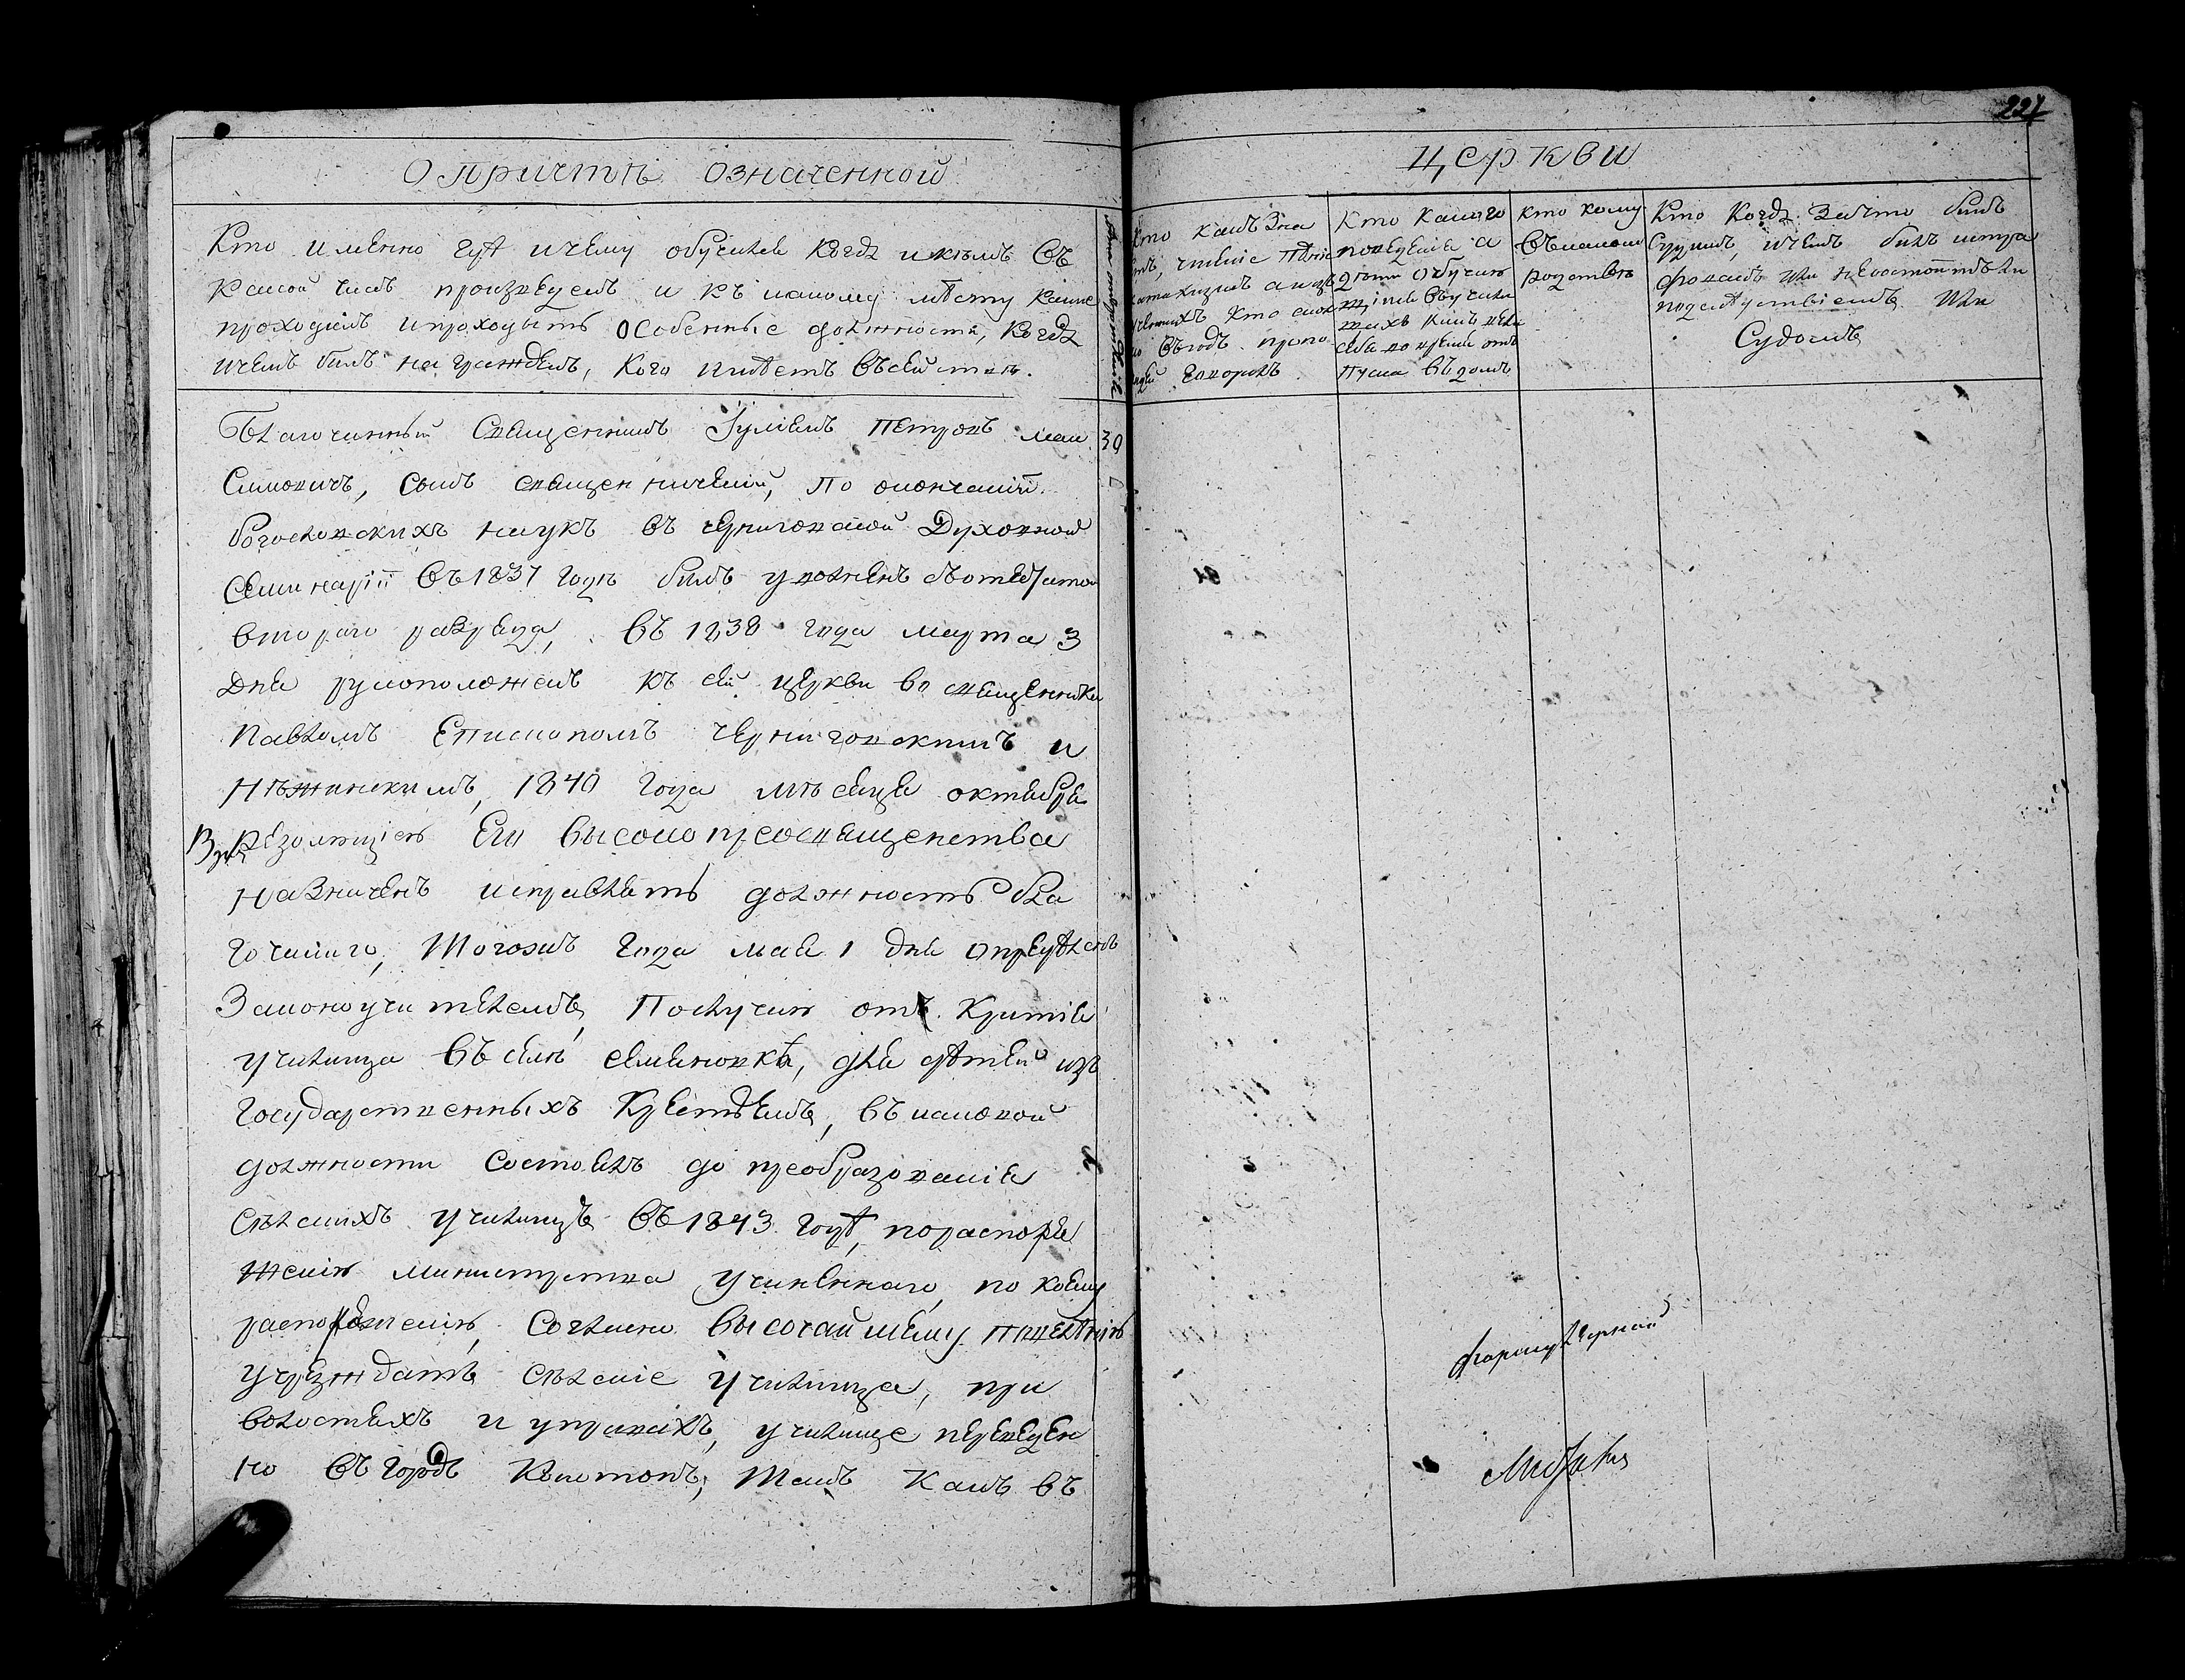 О причтѣ означенной
Кто именно гдѣ и чему обучался когда и кѣмъ въ
какой чинъ произведенъ и къ какому мѣсту какие
проходилъ и проходитъ особенные должности, когда
и чемъ былъ награжденъ, кого имѣетъ въ семействѣ.
Благочинный Священникъ Іуліянъ Петровъ Мак
симовичъ, сынъ священническій, по окончаніи
богословскихъ наукъ въ Черниговской Духовной
Семинаріи въ 1837 годѣ былъ уволенъ съ аттестатомъ
втораго разряда, въ 1838 года марта 3
дня рукоположенъ къ сей церкви во священника
Павломъ Епископомъ Черниговскимъ и
Нѣжинскимъ, 1840 года мѣсяца октября
резолюціею Его Высокопреосвященства
назначенъ исправлять должность бла
гочинаго, тогожъ года мая 1 дня опредѣленъ
Законоучителемъ
училища въ селѣ Семеновкѣ, для дѣтей изъ
Государственныхъ Крестьянъ, въ каковой
должности состоялъ до преобразованія
сельскихъ училищъ въ 1843 годѣ, по распоря
женію министерства учиненнаго, по коему
распоряженію, согласно высочайшему повелѣнію
учреждать сельскіе училища, при
волостяхъ и управахъ, училище переведен
но въ городъ Конотопъ; такъ какъ въ
лѣта отъ рожденія
30
церкви
227
Кто какъ зна
етъ, чтеніе пѣніе
катихизисъ а изъ
ученыхъ кто сколь
ко въ годъ пропо
ведей говорилъ
Кто какого
поведенія а
дѣти обучаю
щіяся въ учили
щахъ какъ вели
себя во время от
пуска въ домъ
Кто кому
въ какомъ
родствѣ
Кто когда за что былъ
судимъ, и чемъ былъ штра
фованъ или не состоитъ ли
подъ слѣдствіемъ или
судомъ